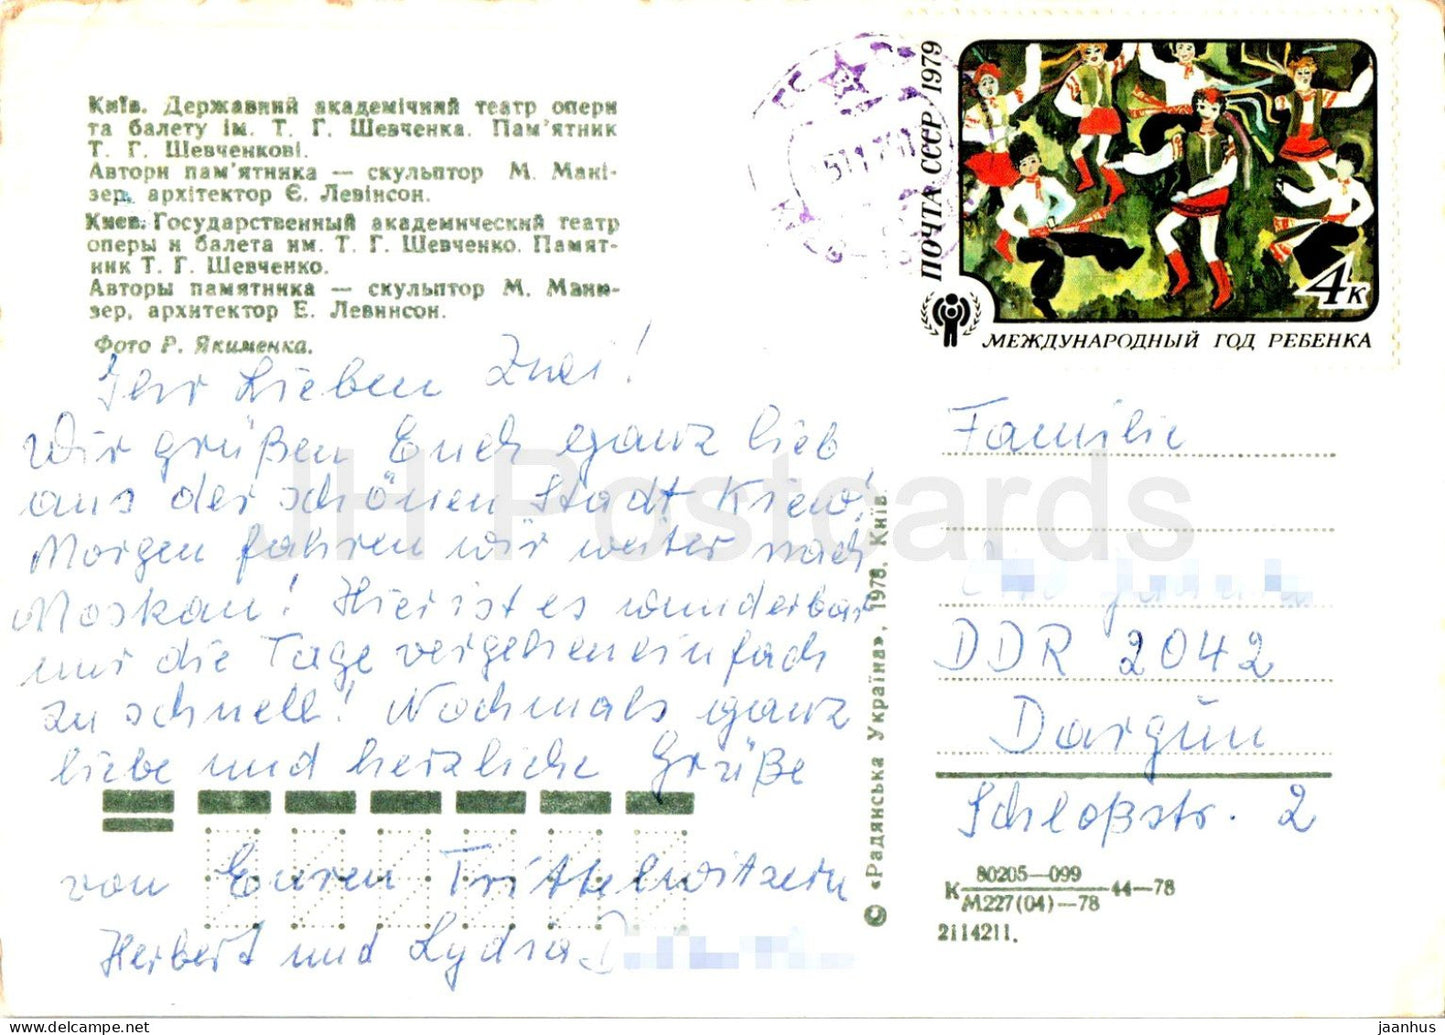 Київ. Державний академічний театр опери
та балету ім. Т. Г. Шевченка. Пам'ятник
Т. Г. Шевченкові.
Автори пам'ятника — скульптор М. Мані-
зер, архітектор Є. Левінсон.
Киев. Государственный академический театр
оперы и балета им. Т. Г. Шевченко. Памят-
ник Т. Г. Шевченко.
Авторы памятника — скульптор М. Мани-
зер, архитектор Е. Левинсон.
Фото Р. Якименка.
Ihr Lieben Zwei!
Wir grüßen Euch ganz lieb
aus der schönen Stadt Kiew!
Morgen fahren wir weiter nach
Moskau! Hier ist es wunderbar
nur die Tage vergehen einfach
zu schnell! Nochmals ganz
liebe und herzliche Grüße
von Euren Trittelwitzern
Herbert und Lydia D
© «Радянська Україна», 1978, Київ.
ПОЧТА СССР 1979
4к
МЕЖДУНАРОДНЫЙ ГОД РЕБЕНКА
Familie
DDR 2042
Dargun
Schloßstr. 2
К 80205—099 44—78
М227(04)—78
2114211.
JH Postcards
jaanhus @ eBay